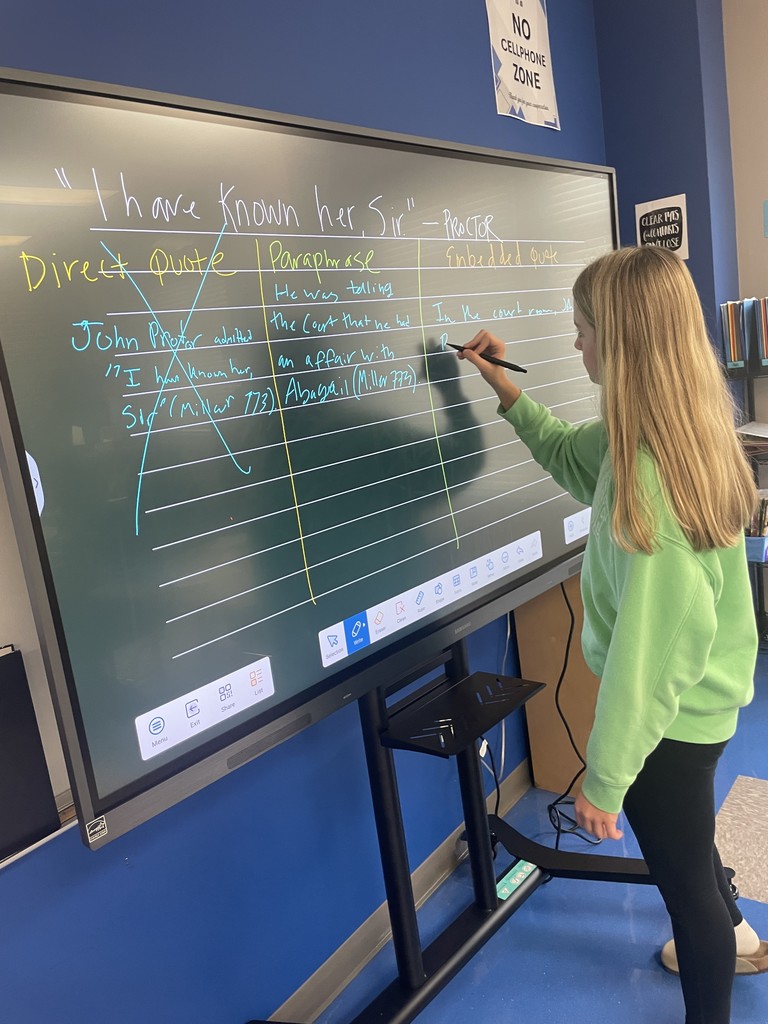 NO
CELLPHONE
ZONE
"I have known her, Sir" – PROCTOR
Direct Quote
Paraphrase
Embedded Quote
John Proctor admitted
"I have known her,
Sir" (Miller 773)
He was telling
the Court that he had
an affair with
Abagail (Miller 773)
In the court room,
Menu
Exit
Share
List
Selection
Write
Eraser
Clear